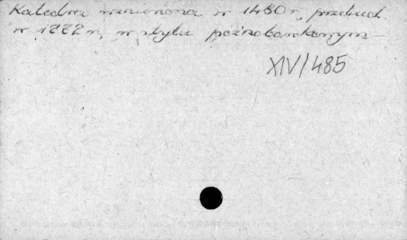 Katedra wzniesiona w 1460 r., przebud.
w 1882 r., w stylu późnobarokowym –
XIV/485